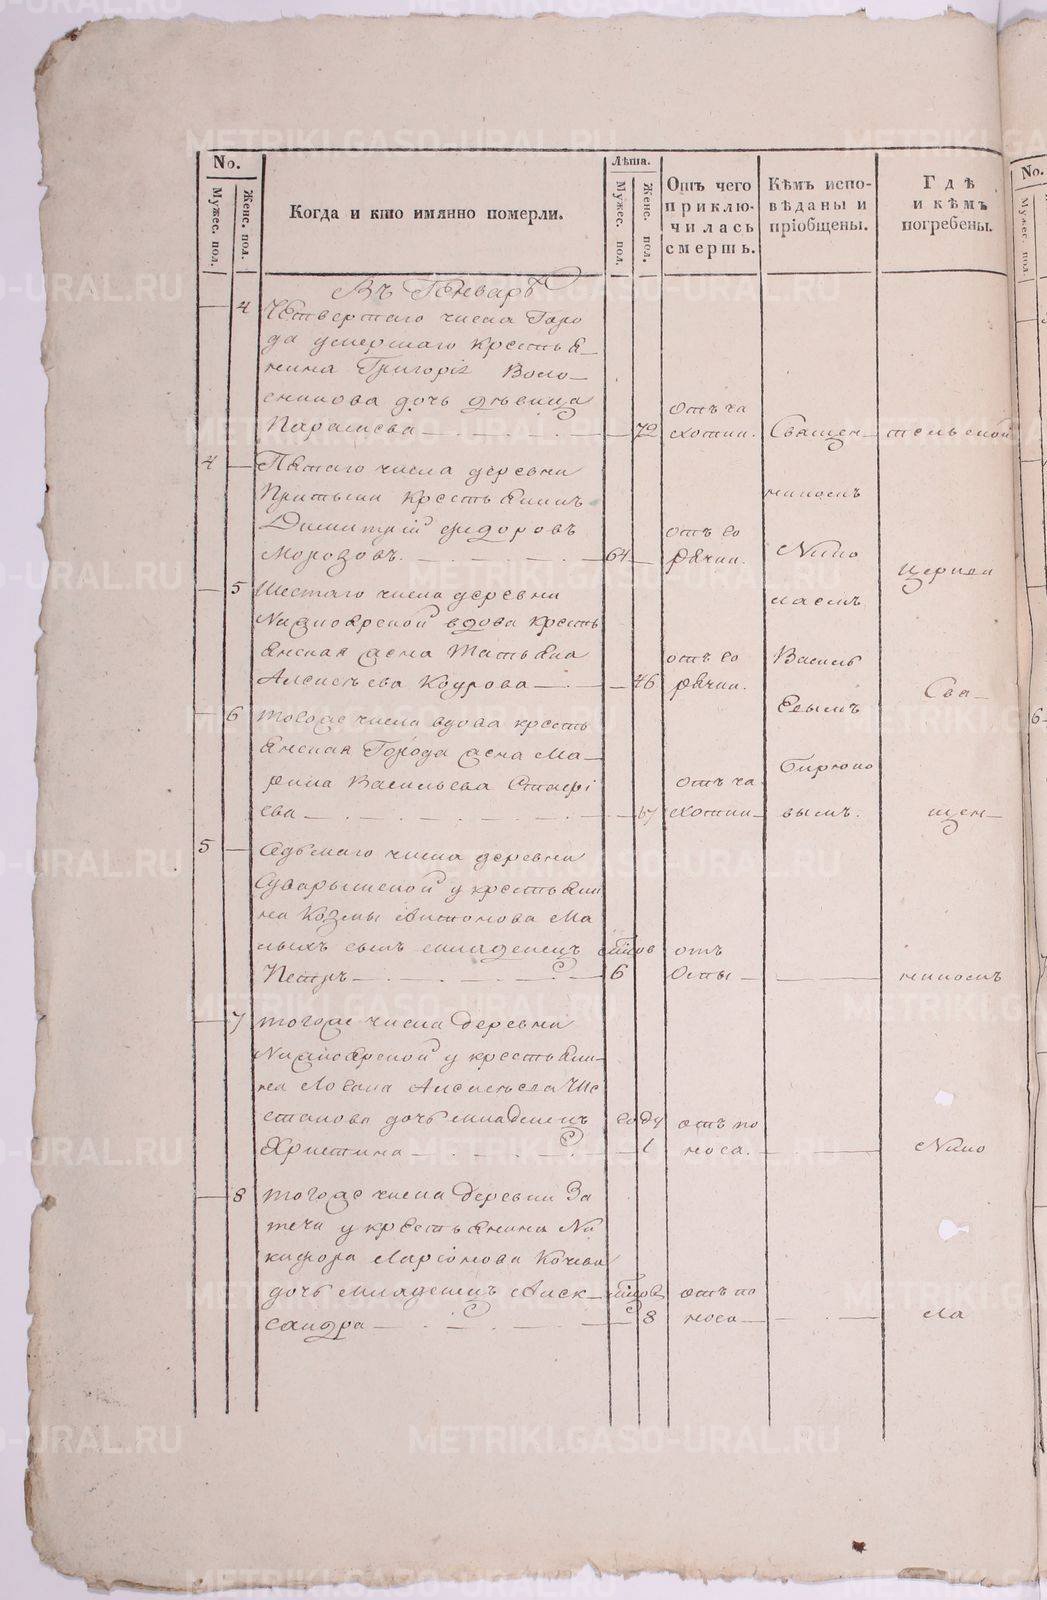 No.
Мужес. пол.
Женс. пол.
Когда и кто имянно померли.
Лѣта.
Мужес. пол.
Женс. пол.
Отъ чего приклю-
чилась
смерть.
Кѣмъ испо-
вѣданы и
пріобщены.
Гдѣ
и кѣмъ
погребены.
Въ Генварѣ
4 Четвертаго числа Горо
да умершаго крестья
нина Григорія
дочь дѣвица
72 отъ ча
хотки. Священ- тельской
4 Пятаго числа деревни
крестьянинъ
Димитрій Ѳидоровъ
Морозовъ. 64 отъ го
рячки.
никомъ
Нико
лаемъ
Церкви
5 Шестаго числа деревни
вдова кресть
янская жена Татьяна
Алексѣева 76 отъ го
рячки.
Василь
евымъ
Свя-
6 тогоже числа вдова кресть
янская Города жена Ма-
рина Васильева
ева 67 отъ ча
хотки
Бирюко
вымъ.
щен-
5 Седьмаго числа деревни
у крестьяни
на Козмы Антонова Ма
лыхъ сынъ младенецъ
Петръ 6 отъ
Оспы никомъ
7 тогоже числа деревни
у крестьяни-
на Алексѣева Ше
стакова дочь младенецъ году
Христина 1 отъ по
носа. Нико
8 тогоже числа деревни За
течи у крестьянина Ни
кифора Ларіонова
дочь младенецъ Алек-
сандра 8 отъ по
носа ла
METRIKI.GASO-URAL.RU